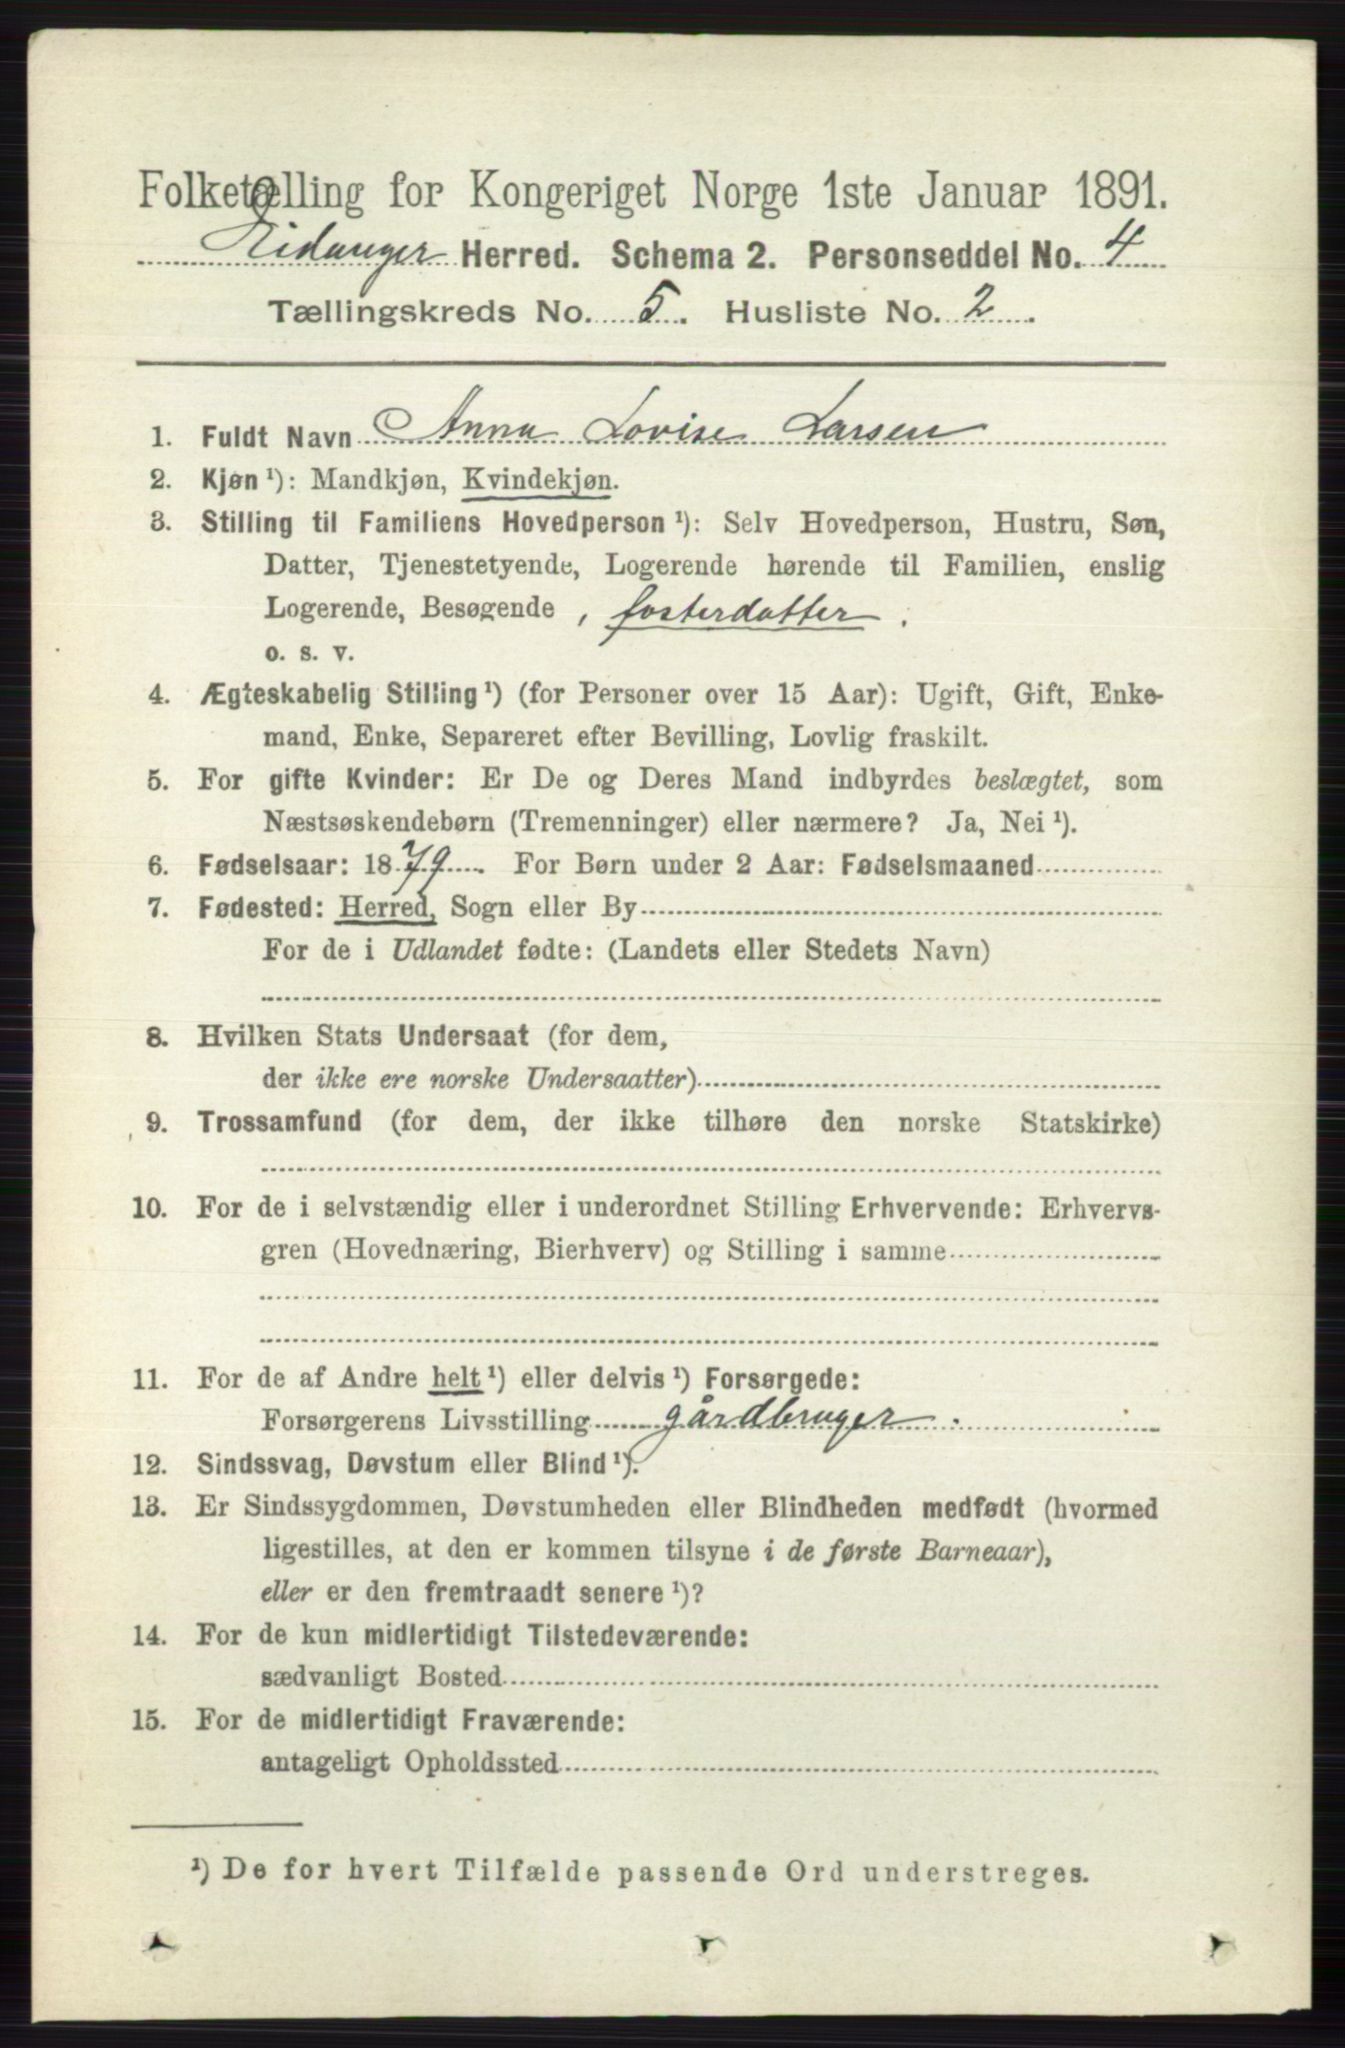 Folketælling for Kongeriget Norge 1ste Januar 1891.
Eidanger Herred. Schema 2. Personseddel No. 4
Tællingskreds No. 5. Husliste No. 2.
1. Fuldt Navn Anna Lovise Larsen
2. Kjøn ¹): Mandkjøn, Kvindekjøn.
3. Stilling til Familiens Hovedperson ¹): Selv Hovedperson, Hustru, Søn,
Datter, Tjenestetyende, Logerende hørende til Familien, enslig
Logerende, Besøgende , fosterdatter .
o. s. v.
4. Ægteskabelig Stilling ¹) (for Personer over 15 Aar): Ugift, Gift, Enke-
mand, Enke, Separeret efter Bevilling, Lovlig fraskilt.
5. For gifte Kvinder: Er De og Deres Mand indbyrdes beslægtet, som
Næstsøskendebørn (Tremenninger) eller nærmere? Ja, Nei ¹).
6. Fødselsaar: 1879. For Børn under 2 Aar: Fødselsmaaned
7. Fødested: Herred, Sogn eller By
For de i Udlandet fødte: (Landets eller Stedets Navn)
8. Hvilken Stats Undersaat (for dem,
der ikke ere norske Undersaatter)
9. Trossamfund (for dem, der ikke tilhøre den norske Statskirke)
10. For de i selvstændig eller i underordnet Stilling Erhvervende: Erhvervs-
gren (Hovednæring, Bierhverv) og Stilling i samme
11. For de af Andre helt ¹) eller delvis ¹) Forsørgede:
Forsørgerens Livsstilling gårdbruger .
12. Sindssvag, Døvstum eller Blind ¹).
13. Er Sindssygdommen, Døvstumheden eller Blindheden medfødt (hvormed
ligestilles, at den er kommen tilsyne i de første Barneaar),
eller er den fremtraadt senere ¹)?
14. For de kun midlertidigt Tilstedeværende:
sædvanligt Bosted
15. For de midlertidigt Fraværende:
antageligt Opholdssted
¹) De for hvert Tilfælde passende Ord understreges.